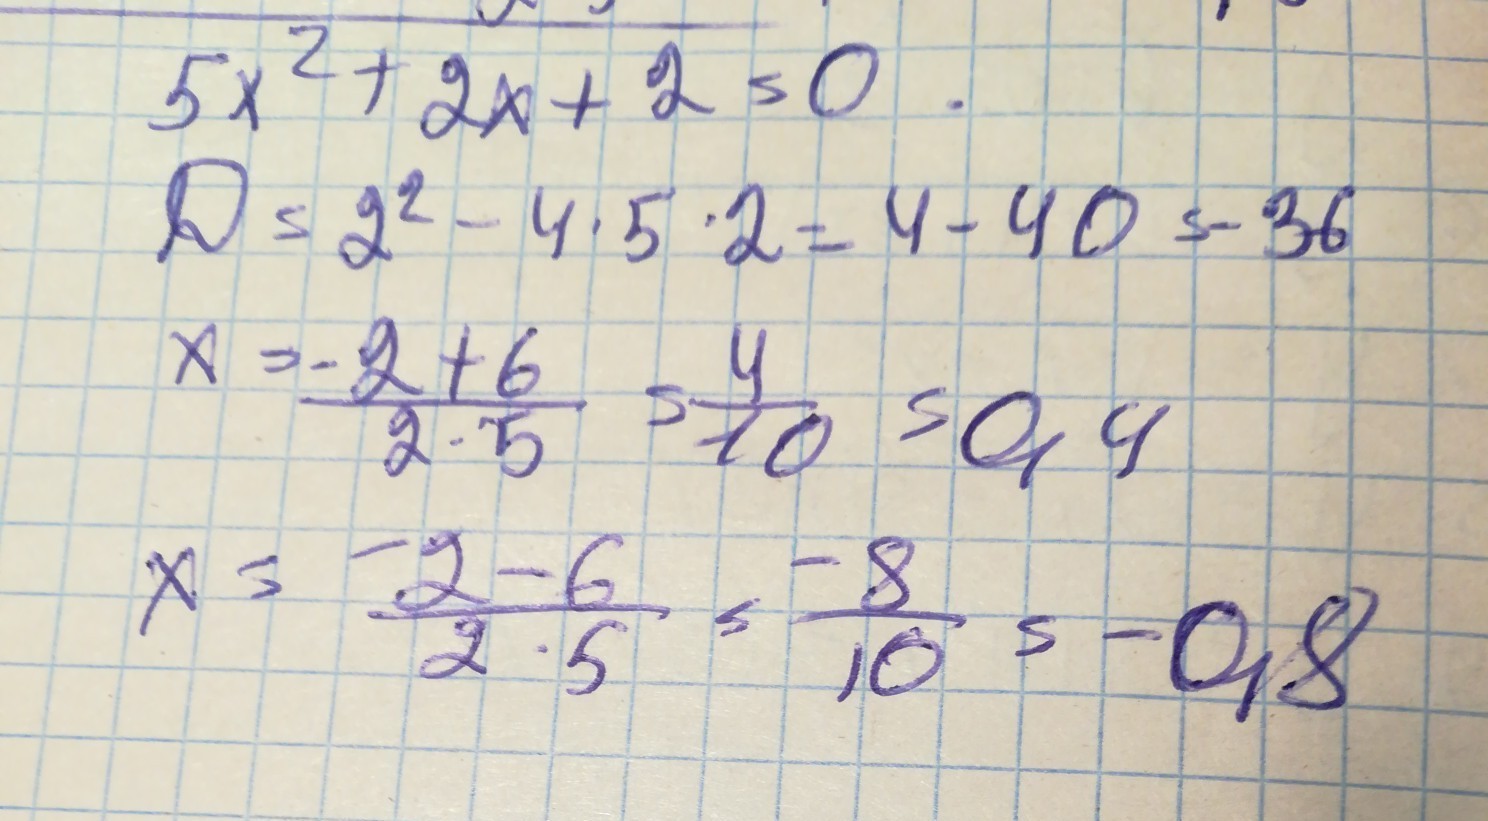 5x² + 2x + 2 = 0 .
D = 2² - 4 · 5 · 2 = 4 - 40 = -36
x = -2 + 6 / 2 · 5 = 4 / 10 = 0,4
x = -2 - 6 / 2 · 5 = -8 / 10 = -0,8